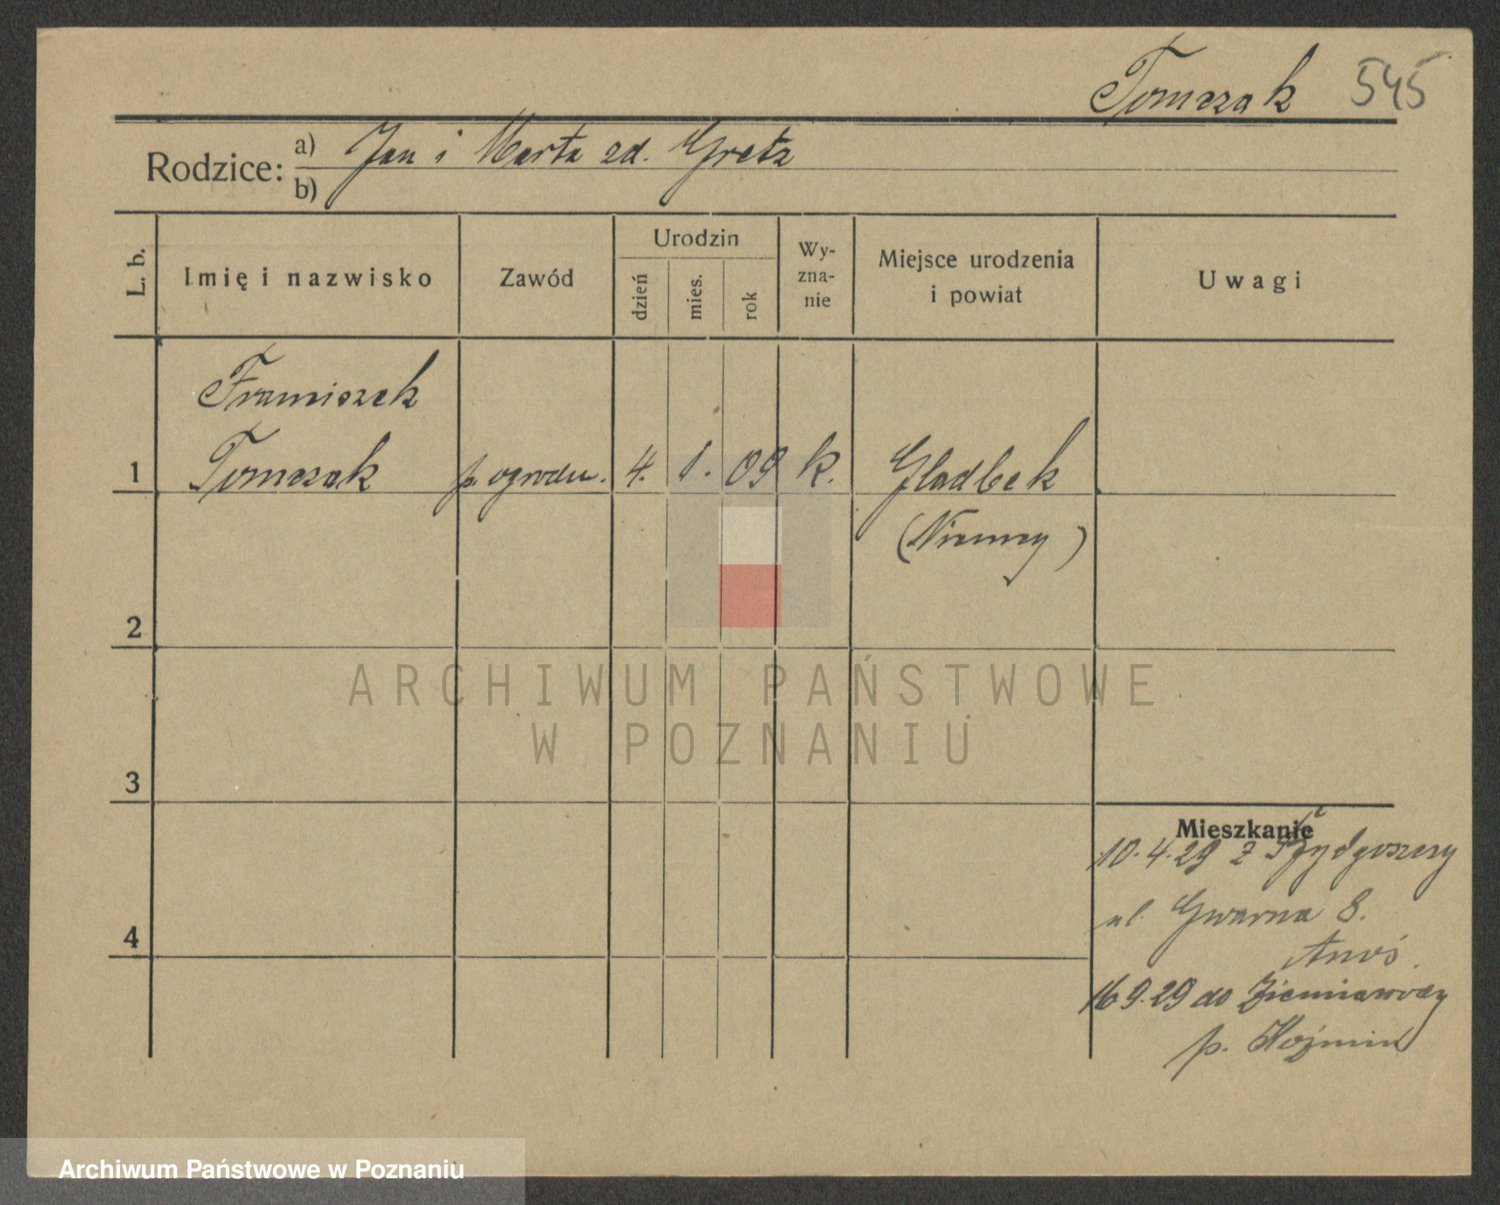 Tomczak 545
Rodzice: a) Jan i Marta zd. Gretz
b)
L. b.
Imię i nazwisko
Zawód
Urodzin
dzień
mies.
rok
Wy-
zna-
nie
Miejsce urodzenia
i powiat
Uwagi
Franciszek
1 Tomczak p. ogrodn. 4. 1. 09 k. Gladbek
(Niemcy)
2
3
4
ARCHIWUM PAŃSTWOWE
W POZNANIU
Mieszkanie
10.4.29 z Bydgoszczy
ul. Gwarna 8.
16 9.29 do
p. Koźmin
Archiwum Państwowe w Poznaniu